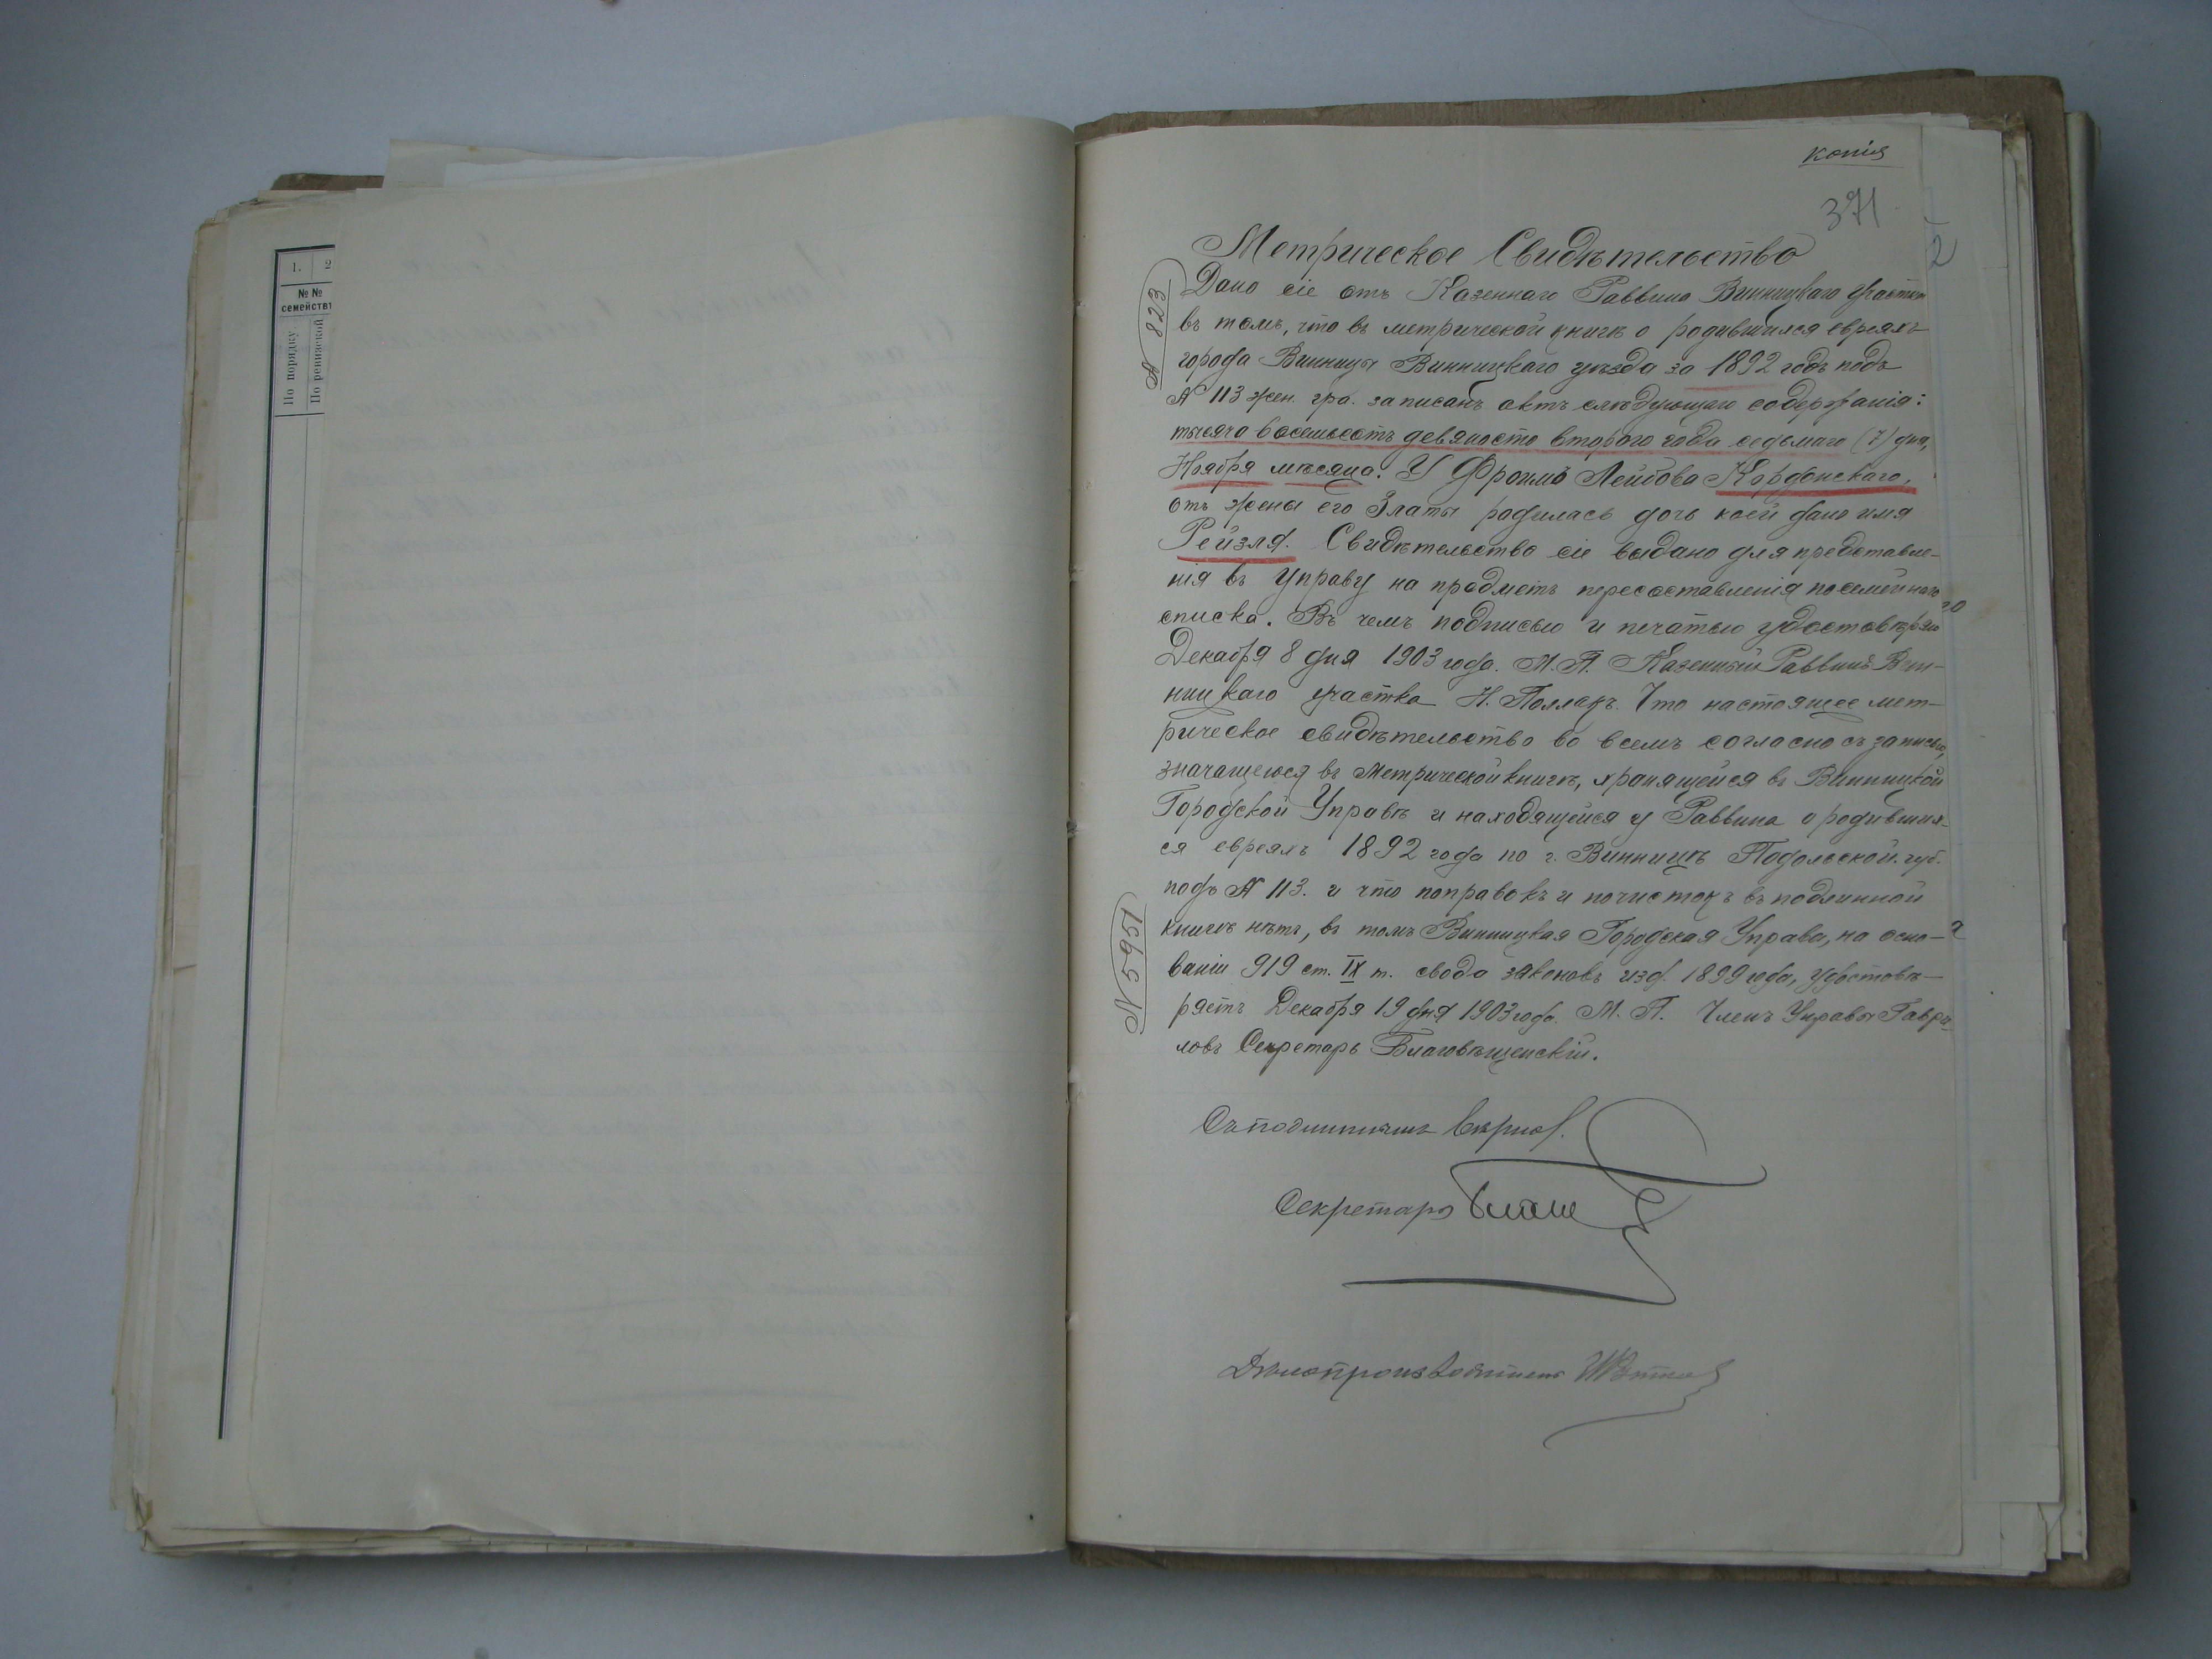 1. 2
№№
семействъ
По порядку.
По ревизской
копія
371
2
Метрическое Свидѣтельство
№ 823
Дано сіе отъ Казеннаго Раввина Винницкаго участка
въ томъ, что въ метрической книгѣ о родившихся евреяхъ
города Винницы Винницкаго уѣзда за 1892 годъ подъ
№ 113 жен. гра. записанъ актъ слѣдующаго содержанія:
тысяча восемьсотъ девяносто второго года седьмаго (7) дня,
Ноября мѣсяца. У Фроима Лейбова Кордонскаго,
отъ жены его Златы родилась дочь коей дано имя
Рейзля. Свидѣтельство сіе выдано для представле-
нія въ Управу на предметъ пересоставленія посемейнаго
списка. Въ чемъ подписью и печатью удостовѣряю
Декабря 8 дня 1903 года. М. П. Казенный Раввинъ Вин-
ницкаго участка Н. Поллакъ. Что настоящее мет-
рическое свидѣтельство во всемъ согласно съ записью,
значащеюся въ Метрической книгѣ, хранящейся въ Винницкой
Городской Управѣ и находящейся у Раввина о родивших-
ся евреяхъ 1892 года по г. Винницѣ Подольской губ.
подъ № 113. и что поправокъ и почистокъ въ подлинной
книгѣ нѣтъ, въ томъ Винницкая Городская Управа, на осно-
ваніи 919 ст. IX т. свода законовъ изд. 1899 года, удостовѣ-
ряетъ Декабря 19 дня 1903 года. М. П. Членъ Управы Гаври-
ловъ Секретарь Благовѣщенскій.
№ 5951
Съ подлиннымъ вѣрно.
Секретарь
Дѣлопроизводитель